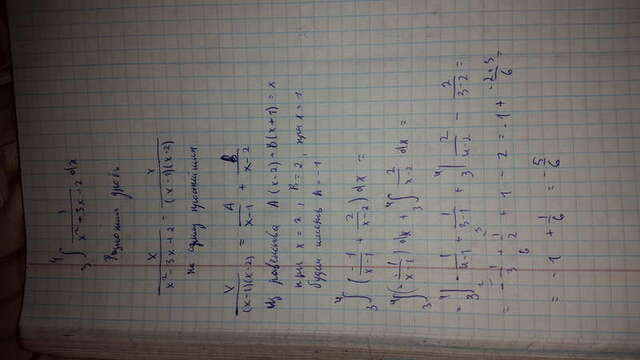 ₃⁴∫ 1/(x² + 3x - 2) dx
Разложим дробь
x/(x² - 3x + 2) = x/((x-1)(x-2))
на сумму простейших
x/((x-1)(x-2)) = A/(x-1) + B/(x-2)
Из равенства A(x-2) + B(x+1) = x
при x = 2, B = 2, при x = 1
будем иметь A = -1
₃⁴∫ (-1/(x-1) + 2/(x-2)) dx =
₃⁴∫ (-1/(x-1)) dx + ₃⁴∫ 2/(x-2) dx =
= ₃⁴| - 1/(4-1) + 1/(3-1) + ₃⁴| 2/(4-2) - 2/(3-2) =
= - 1/3 + 1/2 + 1 - 2 = -1 + (-2+3)/6 =
= -1 + 1/6 = -5/6